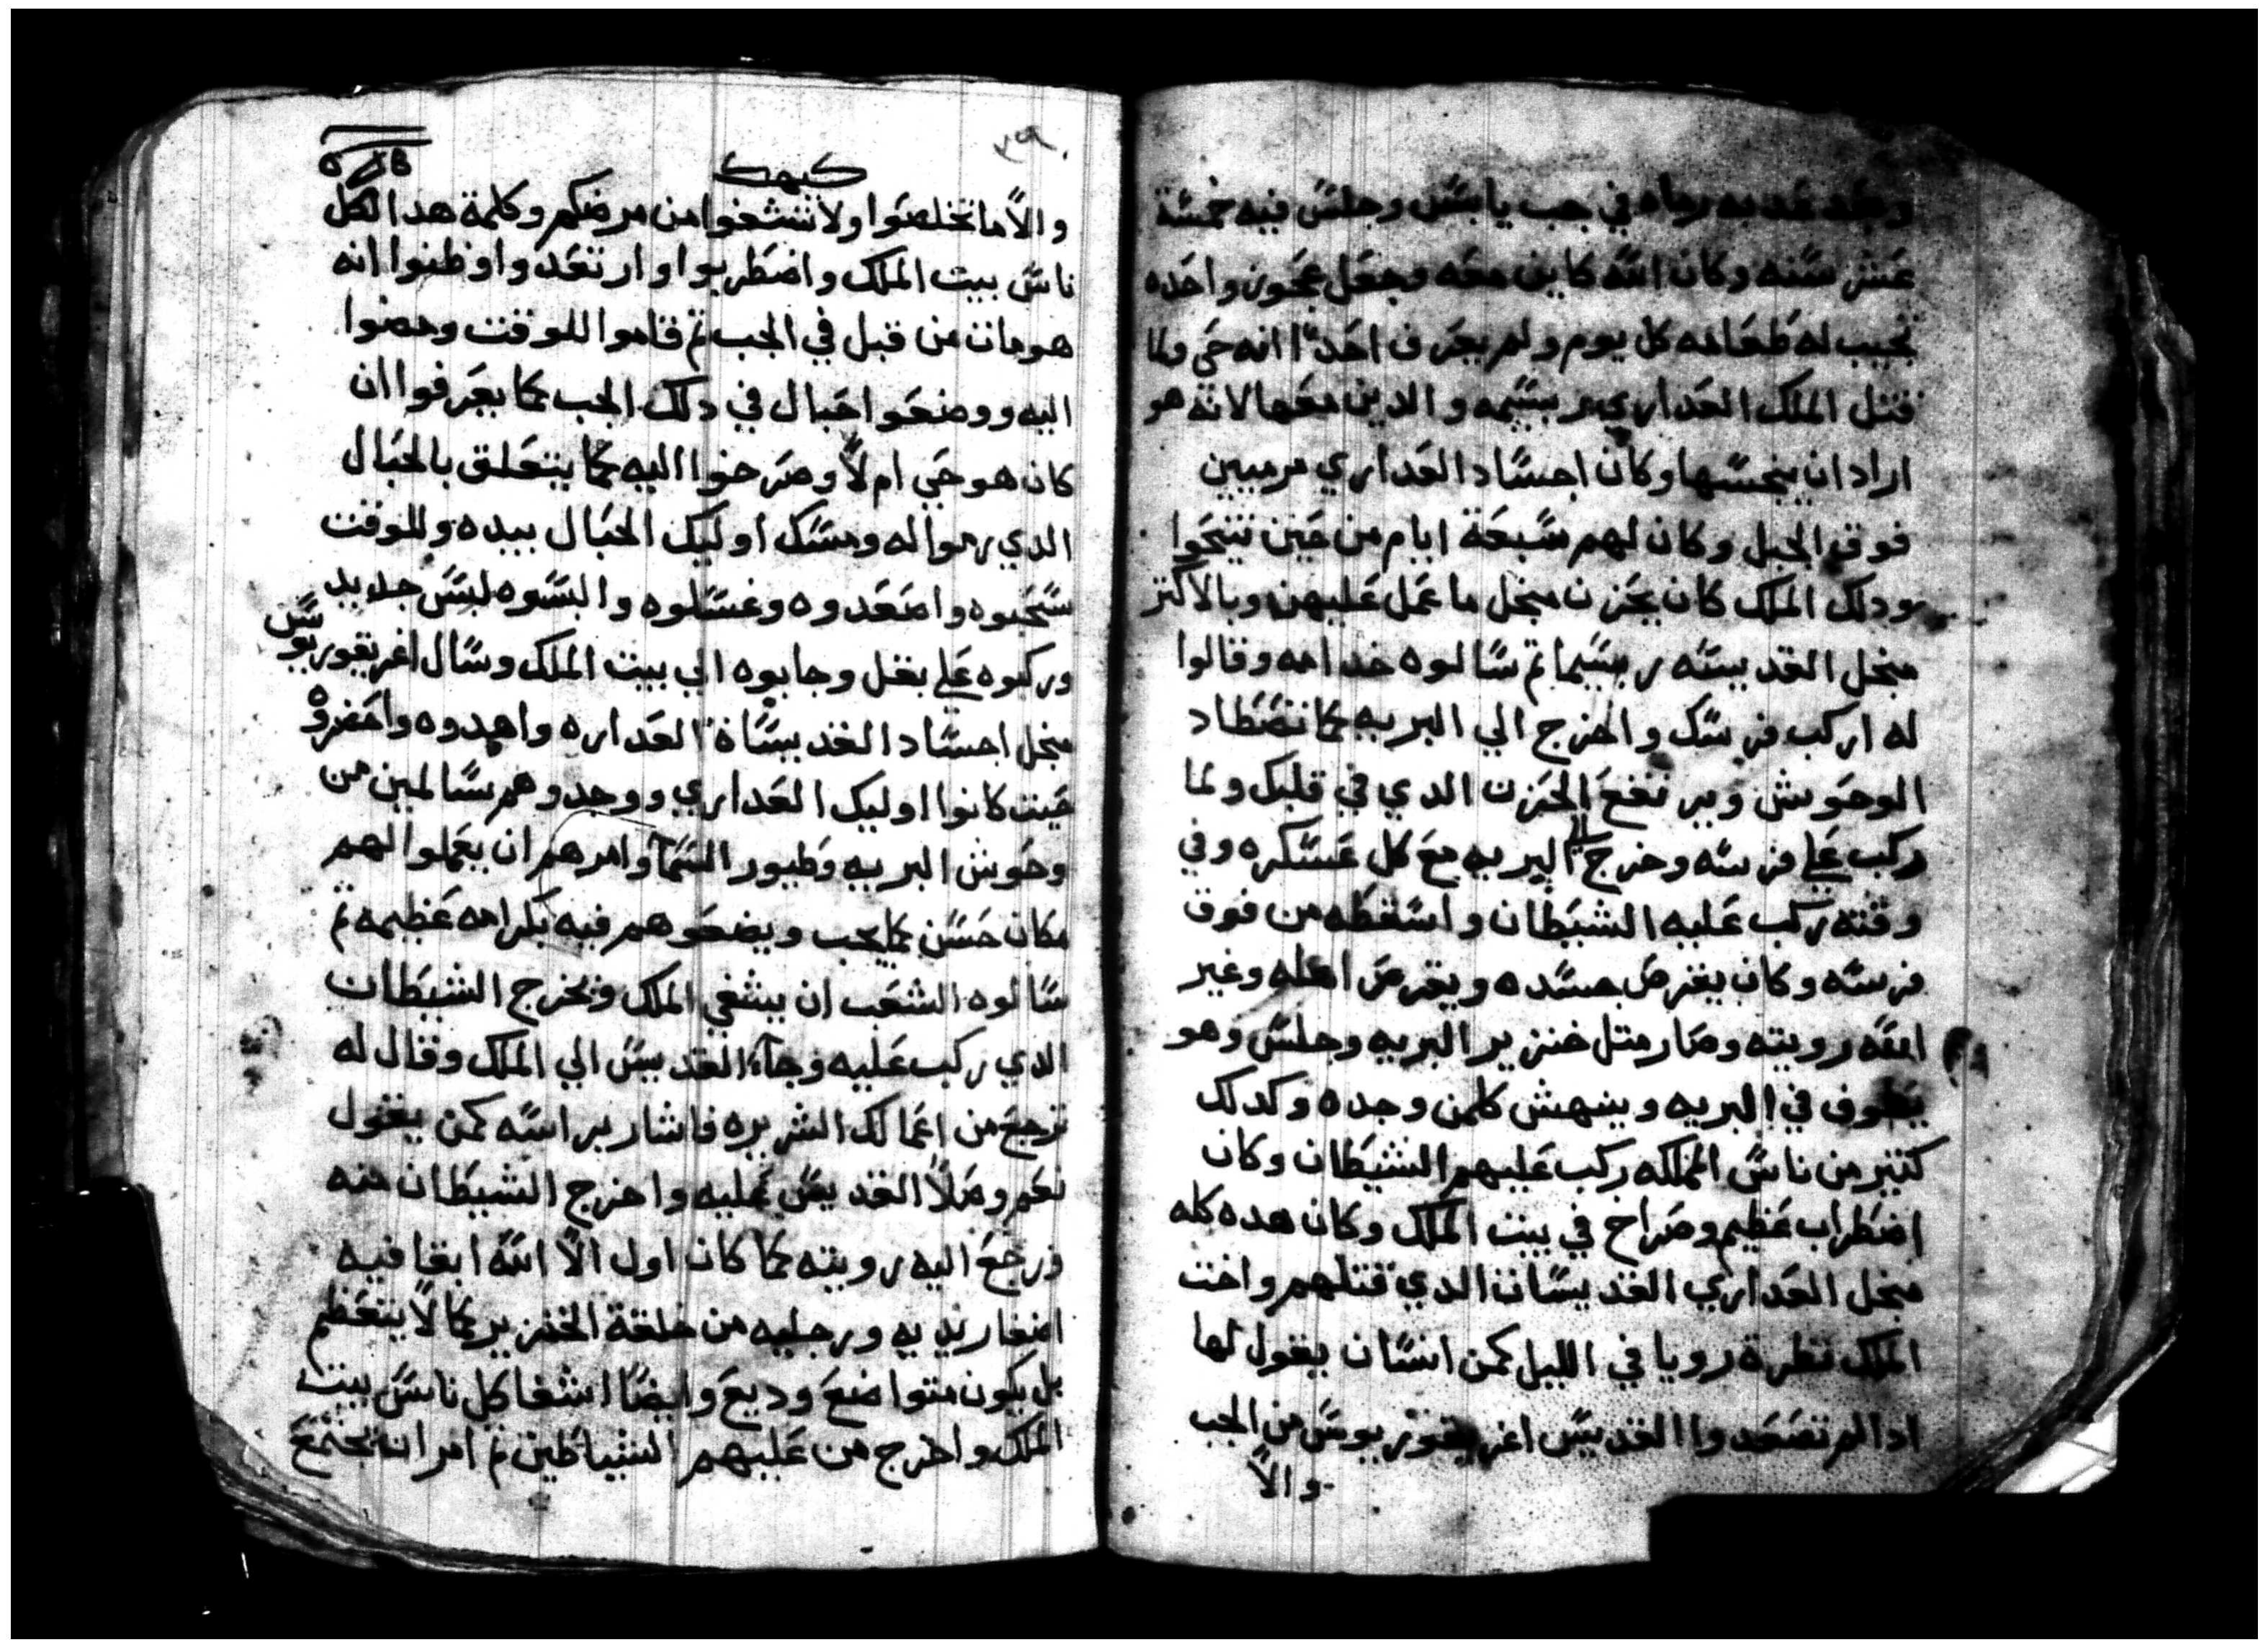 وبعد عدبه رماه في جب يابس وجلس فيه خمسة
عشر سنه وكان الله كاين معه وجعل عجوز واحده
تجيب له طعامه كل يوم ولم يعرف احدًا انه حي ولما
قتل الملك العداري ربسيمه والدين معها لانه هو
اراد ان ينجسها وكان اجساد العداري مرميين
فوق الجبل وكان لهم سبعة ايام من حين تنيحوا
ودلك الملك كان يحزن منجل ما عمل عليهن وبالاكتر
منجل القديسه ربسيما تم سالوه خدامه وقالوا
له اركب فرسك والخرج الي البريه كما تتصطاد
الوحوش ويرتفع الحزن الدي في قلبك ولما
ركب علي فرسه وخرج الي البريه مع كل عسكره وفي
وقته ركب عليه الشيطان واسقطه من فوق
فرسه وكان يقرض جسده ويقرض اهله وغير
الله رويته وصار متل خنزير البريه وجلس وهو
يطوف في البريه وينهش كلمن وجده وكدلك
كتير من ناس المملكه ركب عليهم الشيطان وكان
اضطراب عظيم وصراخ في بيت الملك وكان هده كله
منجل العداري القديسات الدي قتلهم واخت
الملك نظرة رويا في الليل كمن انسان يقول لها
ادا لم تصعدوا القديس اغريغوريوس من الجب
والاً
كيهك
والاً ما تخلصوا ولا تتشفوا من مرضكم وكلمة هدا الكل
ناس بيت الملك واضطربوا وارتعدوا وظنوا انه
هو مات من قبل في الجب تم قاموا للوقت ومضوا
اليه ووضعوا احبال في دلك الجب كما يعرفوا ان
كان هو حي ام لاً وصرخوا اليه كما يتعلق بالحبال
الدي رموا له ومسك اوليك الحبال بيده وللوقت
سحبوه واصعدوه وغسلوه والبسوه لبس جديد
وركبوه علي بغل وجابوه الي بيت الملك وسال اغريغوريوس
منجل اجساد القديساة العداره واهدوه واحضروه
حيت كانوا اوليك العداري ووجدوهم سالمين من
وحوش البريه وطيور السما وامرهم ان يعملوا لهم
مكان حسن كما يجب ويضعوهم فيه بكرامه عظيمه تم
سالوه الشعب ان يشفي الملك ويخرج الشيطان
الدي ركب عليه وجاء القديس الي الملك وقال له
ترجع من اعمالك الشريره فاشار براسه كمن يقول
نعم وصلاً القديس عليه واخرج الشيطان منه
ورجع اليه رويته كما كان اول الاً الله ابقا فيه
اضفار يديه ورجليه من خلقة الخنزير كما لاً يتعظم
بل يكون متواضع وديع وايضاً اشفا كل ناس بيت
الملك واخرج من عليهم الشياطين تم امر انه يجتمع